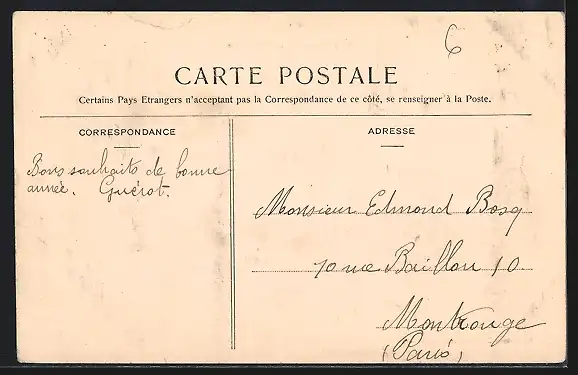 6
CARTE POSTALE
Certains Pays Etrangers n'acceptant pas la Correspondance de ce côté, se renseigner à la Poste.
CORRESPONDANCE
ADRESSE
Bons souhaits de bonne
année. Guérot.
Monsieur Edmond Bosq
10 rue Baillou 10
Montrouge
(Paris)